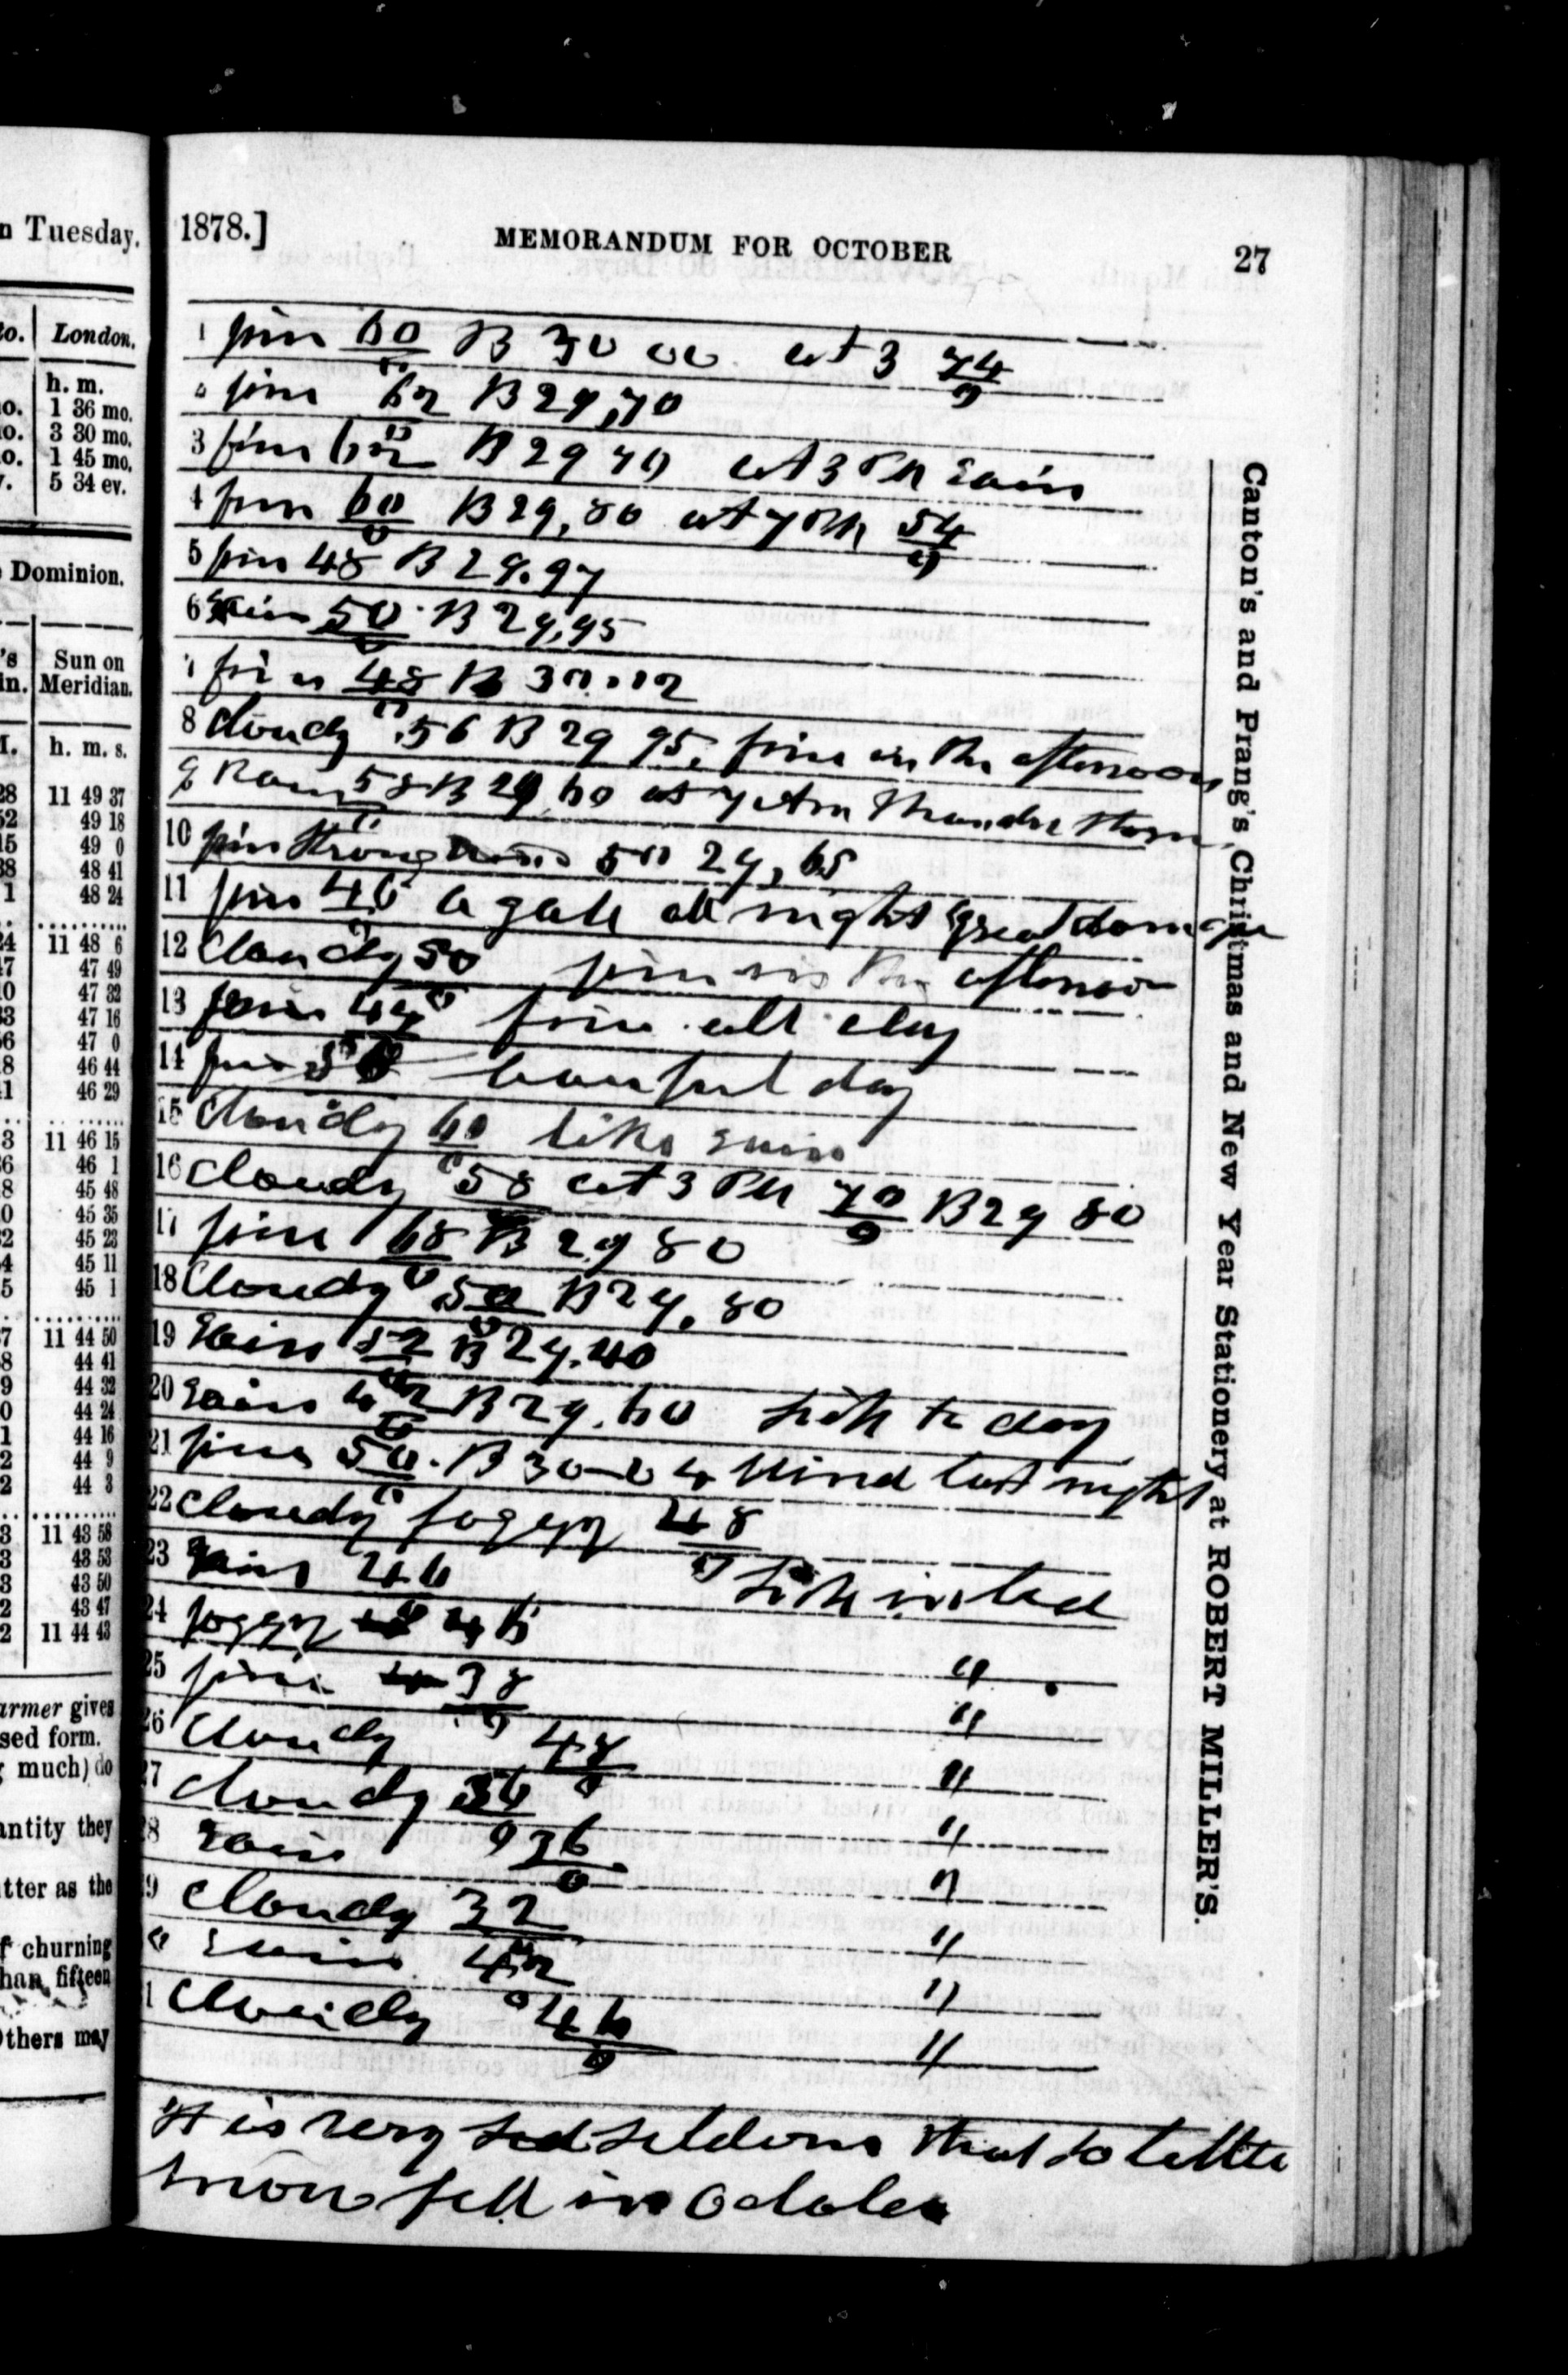 1878.] MEMORANDUM FOR OCTOBER 27
1 fine 60/0 B 30 00 at 3 74/0
2 fine 62 B 29,70
3 fine 62 B 29 70 at 3 PM Rain
4 fine 60/0 B 29,80 at 7 PM 54/0
5 fine 48 B 29.97
6 Rain 50 B 29,95
7 fine 48 B 30.02
8 Cloudy 56 B 29 95, fine in the afternoon
9 Rain 58 B 29,60 at 7 Am Thunder Storm
10 fine Strong wind 50 29,65
11 fine 46 a gale all night great damage
12 Cloudy 50 fine in the afternoon
13 fine 44 fine all day
14 fine beautiful day
15 Cloudy 60 like rain
16 Cloudy 58 at 3 PM 70/0 B 29 80
17 fine 68 B 29 80
18 Cloudy 50 B 29,80
19 Rain 52 B 29.40
20 Rain 42 B 29.60 Sick to day
21 fine 50. B 30-04 Wind last night
22 Cloudy foggy 48
23 Rain 46 Sick in bed
24 foggy 46 "
25 fine 38 "
26 Cloudy 48 "
27 Cloudy 36 "
8 Rain 36 "
9 Cloudy 32 "
0 Rain 42 "
1 Cloudy 46 "
It is very seldom that so little
snow fell in October
Canton's and Prang's Christmas and New Year Stationery at ROBERT MILLER'S.
n Tuesday.
London.
h. m.
1 36 mo.
3 30 mo.
1 45 mo.
5 34 ev.
Dominion.
Sun on
Meridian.
h. m. s.
11 49 37
49 18
49 0
48 41
48 24
11 48 6
47 49
47 32
47 16
47 0
46 44
46 29
11 46 15
46 1
45 48
45 35
45 23
45 11
45 1
11 44 50
44 41
44 32
44 24
44 16
44 9
44 3
11 43 58
43 53
43 50
43 47
11 44 43
armer gives
sed form.
much) do
antity they
tter as the
f churning
han fifteen
Others may